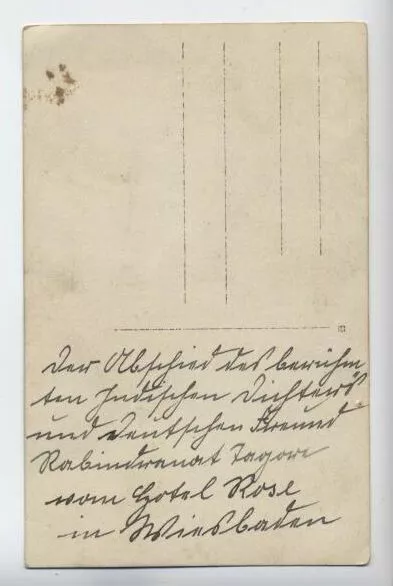 Der Abschied des berühm
ten Indischen Dichters
und deutschen Freund
Rabindranat Tagore
vom Hotel Rose
in Wiesbaden